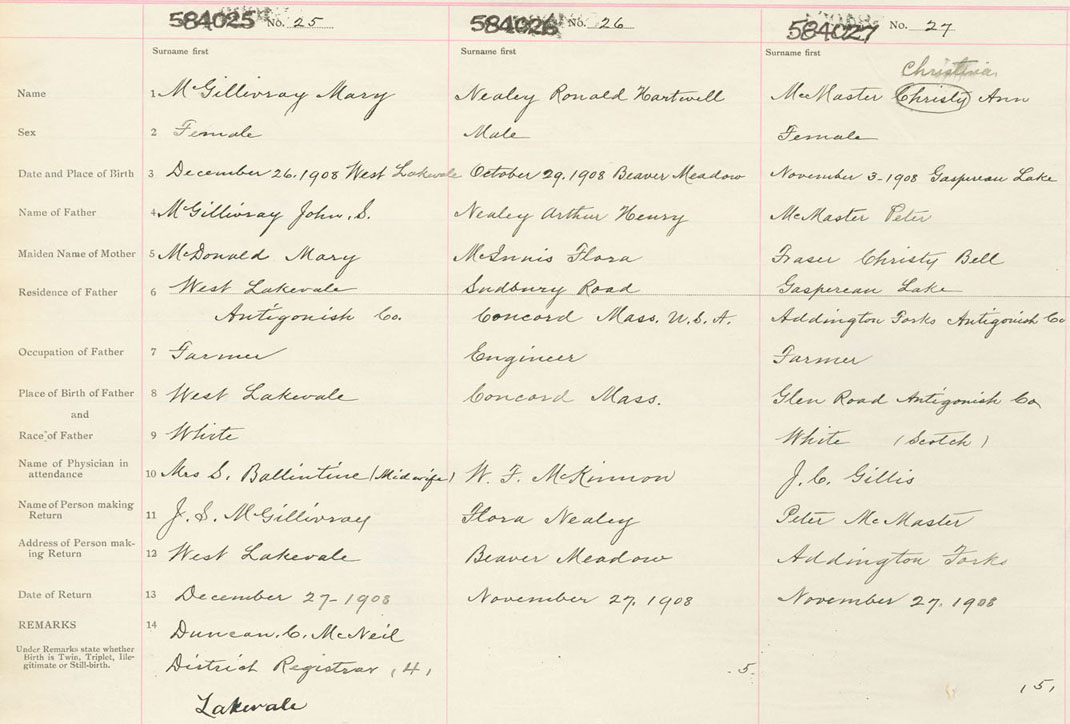 584025 No. 25 584026 No. 26 584027 No. 27
Surname first Surname first Surname first
Christina
Name 1 McGillivray Mary Nealey Ronald Hartwell McMaster Christy Ann
Sex 2 Female Male Female
Date and Place of Birth 3 December 26. 1908 West Lakevale October 29. 1908 Beaver Meadow November 3-1908 Gaspereau Lake
Name of Father 4 McGillivray John. S. Nealey Arthur Henry McMaster Peter
Maiden Name of Mother 5 McDonald Mary McInnis Flora Fraser Christy Bell
Residence of Father 6 West Lakevale Sudbury Road Gaspereau Lake
Antigonish Co. Concord Mass. U.S.A. Addington Forks Antigonish Co
Occupation of Father 7 Farmer Engineer Farmer
Place of Birth of Father 8 West Lakevale Concord Mass. Glen Road Antigonish Co
and
Race of Father 9 White White (Scotch)
Name of Physician in
attendance 10 Mrs S. Ballintine (Midwife) W. F. McKinnon J. C. Gillis
Name of Person making
Return 11 J. S. McGillivray Flora Nealey Peter McMaster
Address of Person mak-
ing Return 12 West Lakevale Beaver Meadow Addington Forks
Date of Return 13 December 27-1908 November 27. 1908 November 27. 1908
REMARKS 14 Duncan. C. McNeil
Under Remarks state whether
Birth is Twin, Triplet, Ille-
gitimate or Still-birth.
District Registrar (4) 5. (5)
Lakevale